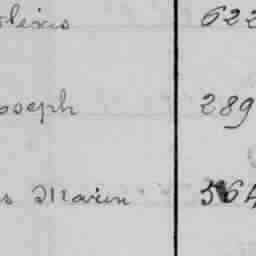 olexis 622
oseph 289
s Marin 564